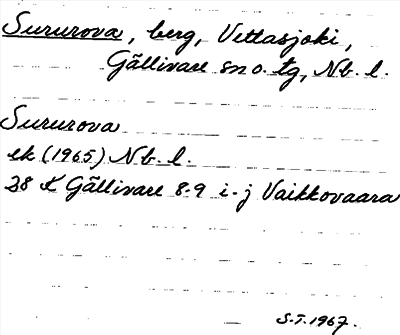 Sururova, berg, Vettasjoki,
Gällivare sn o. tg, Nb. l.
Sururova
ek (1965) Nb. l.
28 K Gällivare 8-9 i-j Vaikkovaara
S.T. 1967.